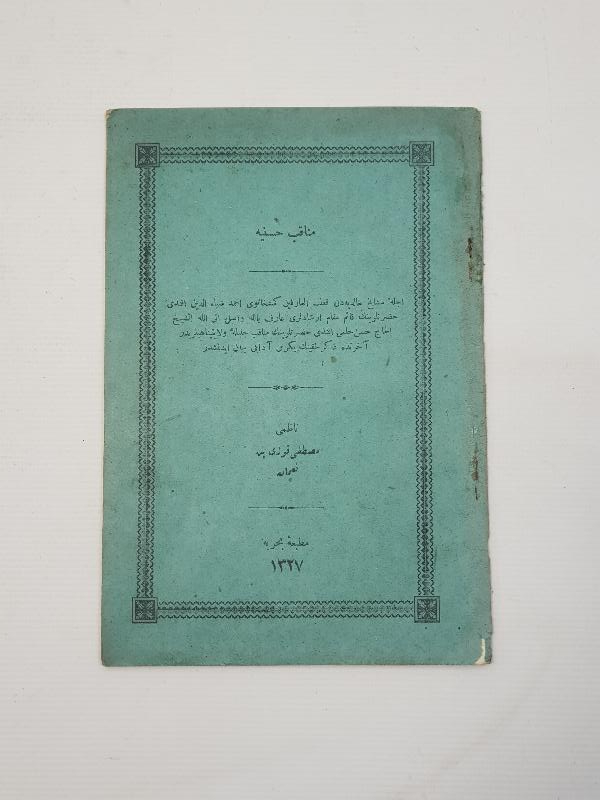 مناقب حسنيه
اجلهٔ مشايخ خالديه‌دن قطب العارفين كمشخانوى احمد ضياء الدين افندى
حضرتلرينك قائم مقام ارشادلرى عارف بالله واصل الى الله الشيخ
الحاج حسن حلمى افندى حضرتلرينك مناقب جليلهٔ ولايتپناهيلريدر
آخرنده ذكر خفينك يكرمى آدابى بيان ايدلمشدر
ناظمى
مصطفى فوزى بن
نعمان
مطبعهٔ بحريه
١٣٢٧